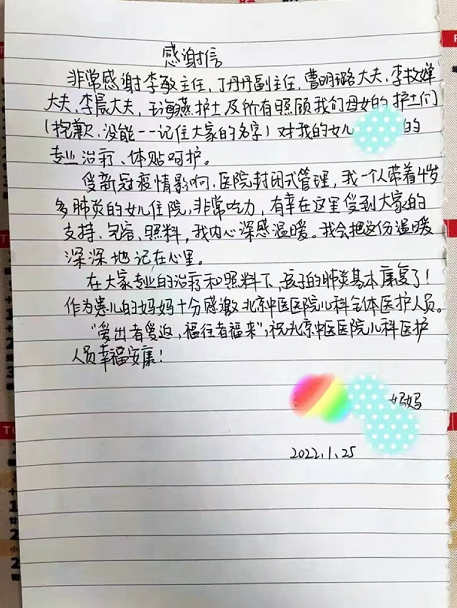 感谢信
非常感谢李敏主任、丁丹丹副主任、曹明璐大夫、李牧婵
大夫、李晨大夫、王海燕护士及所有照顾我们母女的护士们
(抱歉、没能一一记住大家的名字)对我的女儿 的
专业治疗、体贴呵护。
受新冠疫情影响,医院封闭式管理,我一人带着4岁
多肺炎的女儿住院,非常吃力,有幸在这里受到大家的
支持、包容、照料,我内心深感温暖。我会把这份温暖
深深地记在心里。
在大家专业的治疗和照料下,孩子的肺炎基本康复了!
作为患儿的妈妈十分感激北京中医医院儿科全体医护人员。
“爱出者爱返,福往者福来”,祝北京中医医院儿科医护
人员幸福安康!
妈妈
2022.1.25